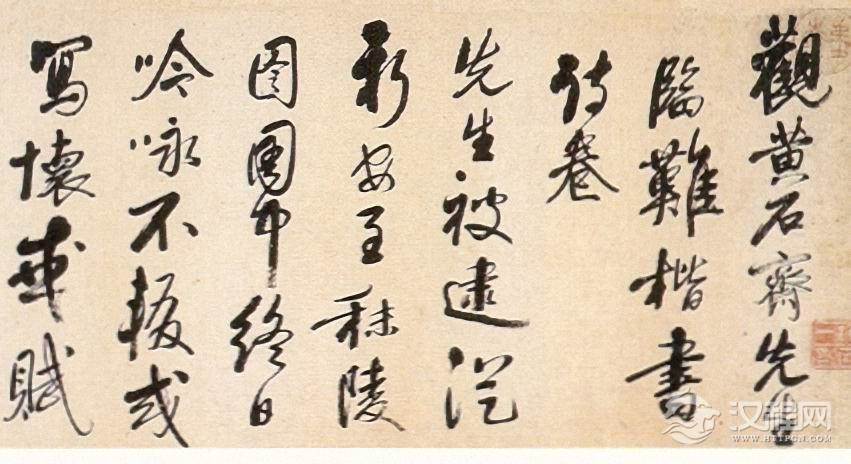 觀黄石齋先生
臨難楷書
詩卷
先生被逮從
新安至秣陵
囹圄中終日
吟咏不輟或
寫懷賦
汉程网
WWW.HTTPCN.COM